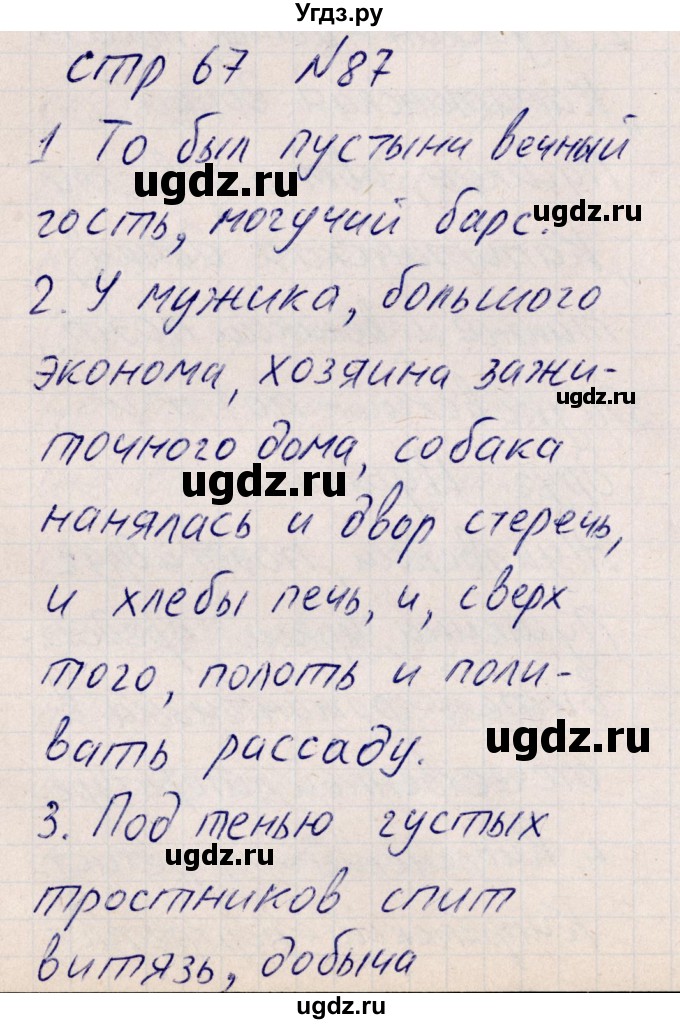 Угдз.ру
стр 67 №87
1 То был пустыни вечный
ugdz.ru
гость, могучий барс.
ugdz.ru
2. У мужика, большого
эконома, хозяина зажи-
ugdz.ru
точного дома, собака
ugdz.ru
нанялась и двор стеречь,
и хлебы печь, и, сверх
того, полоть и поли-
вать рассаду.
ugdz.ru
3. Под тенью густых
ugdz.ru
тростников спит
витязь, добыча
ugdz.ru